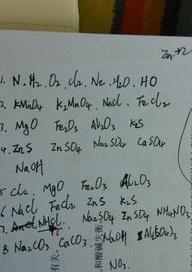 Zn +2
1. N. H2. O2. cl2. Ne. H2O. HO
2. KMnO4 K2MnO4. NaCl. FeCl2
3. MgO Fe2O3 Al2O3 K2S
4. ZnS ZnSO4 Na2SO4 CaSO4
NaOH
5 cl2. MgO Fe2O3 Al2O3
6 NaCl FeCl2 ZnS K2S
7. NH4Cl. Na2SO4 ZnSO4 NH4NO3
8 Na2CO3 CaCO3 NaOH
NO3.
和酸碱失衡
有关